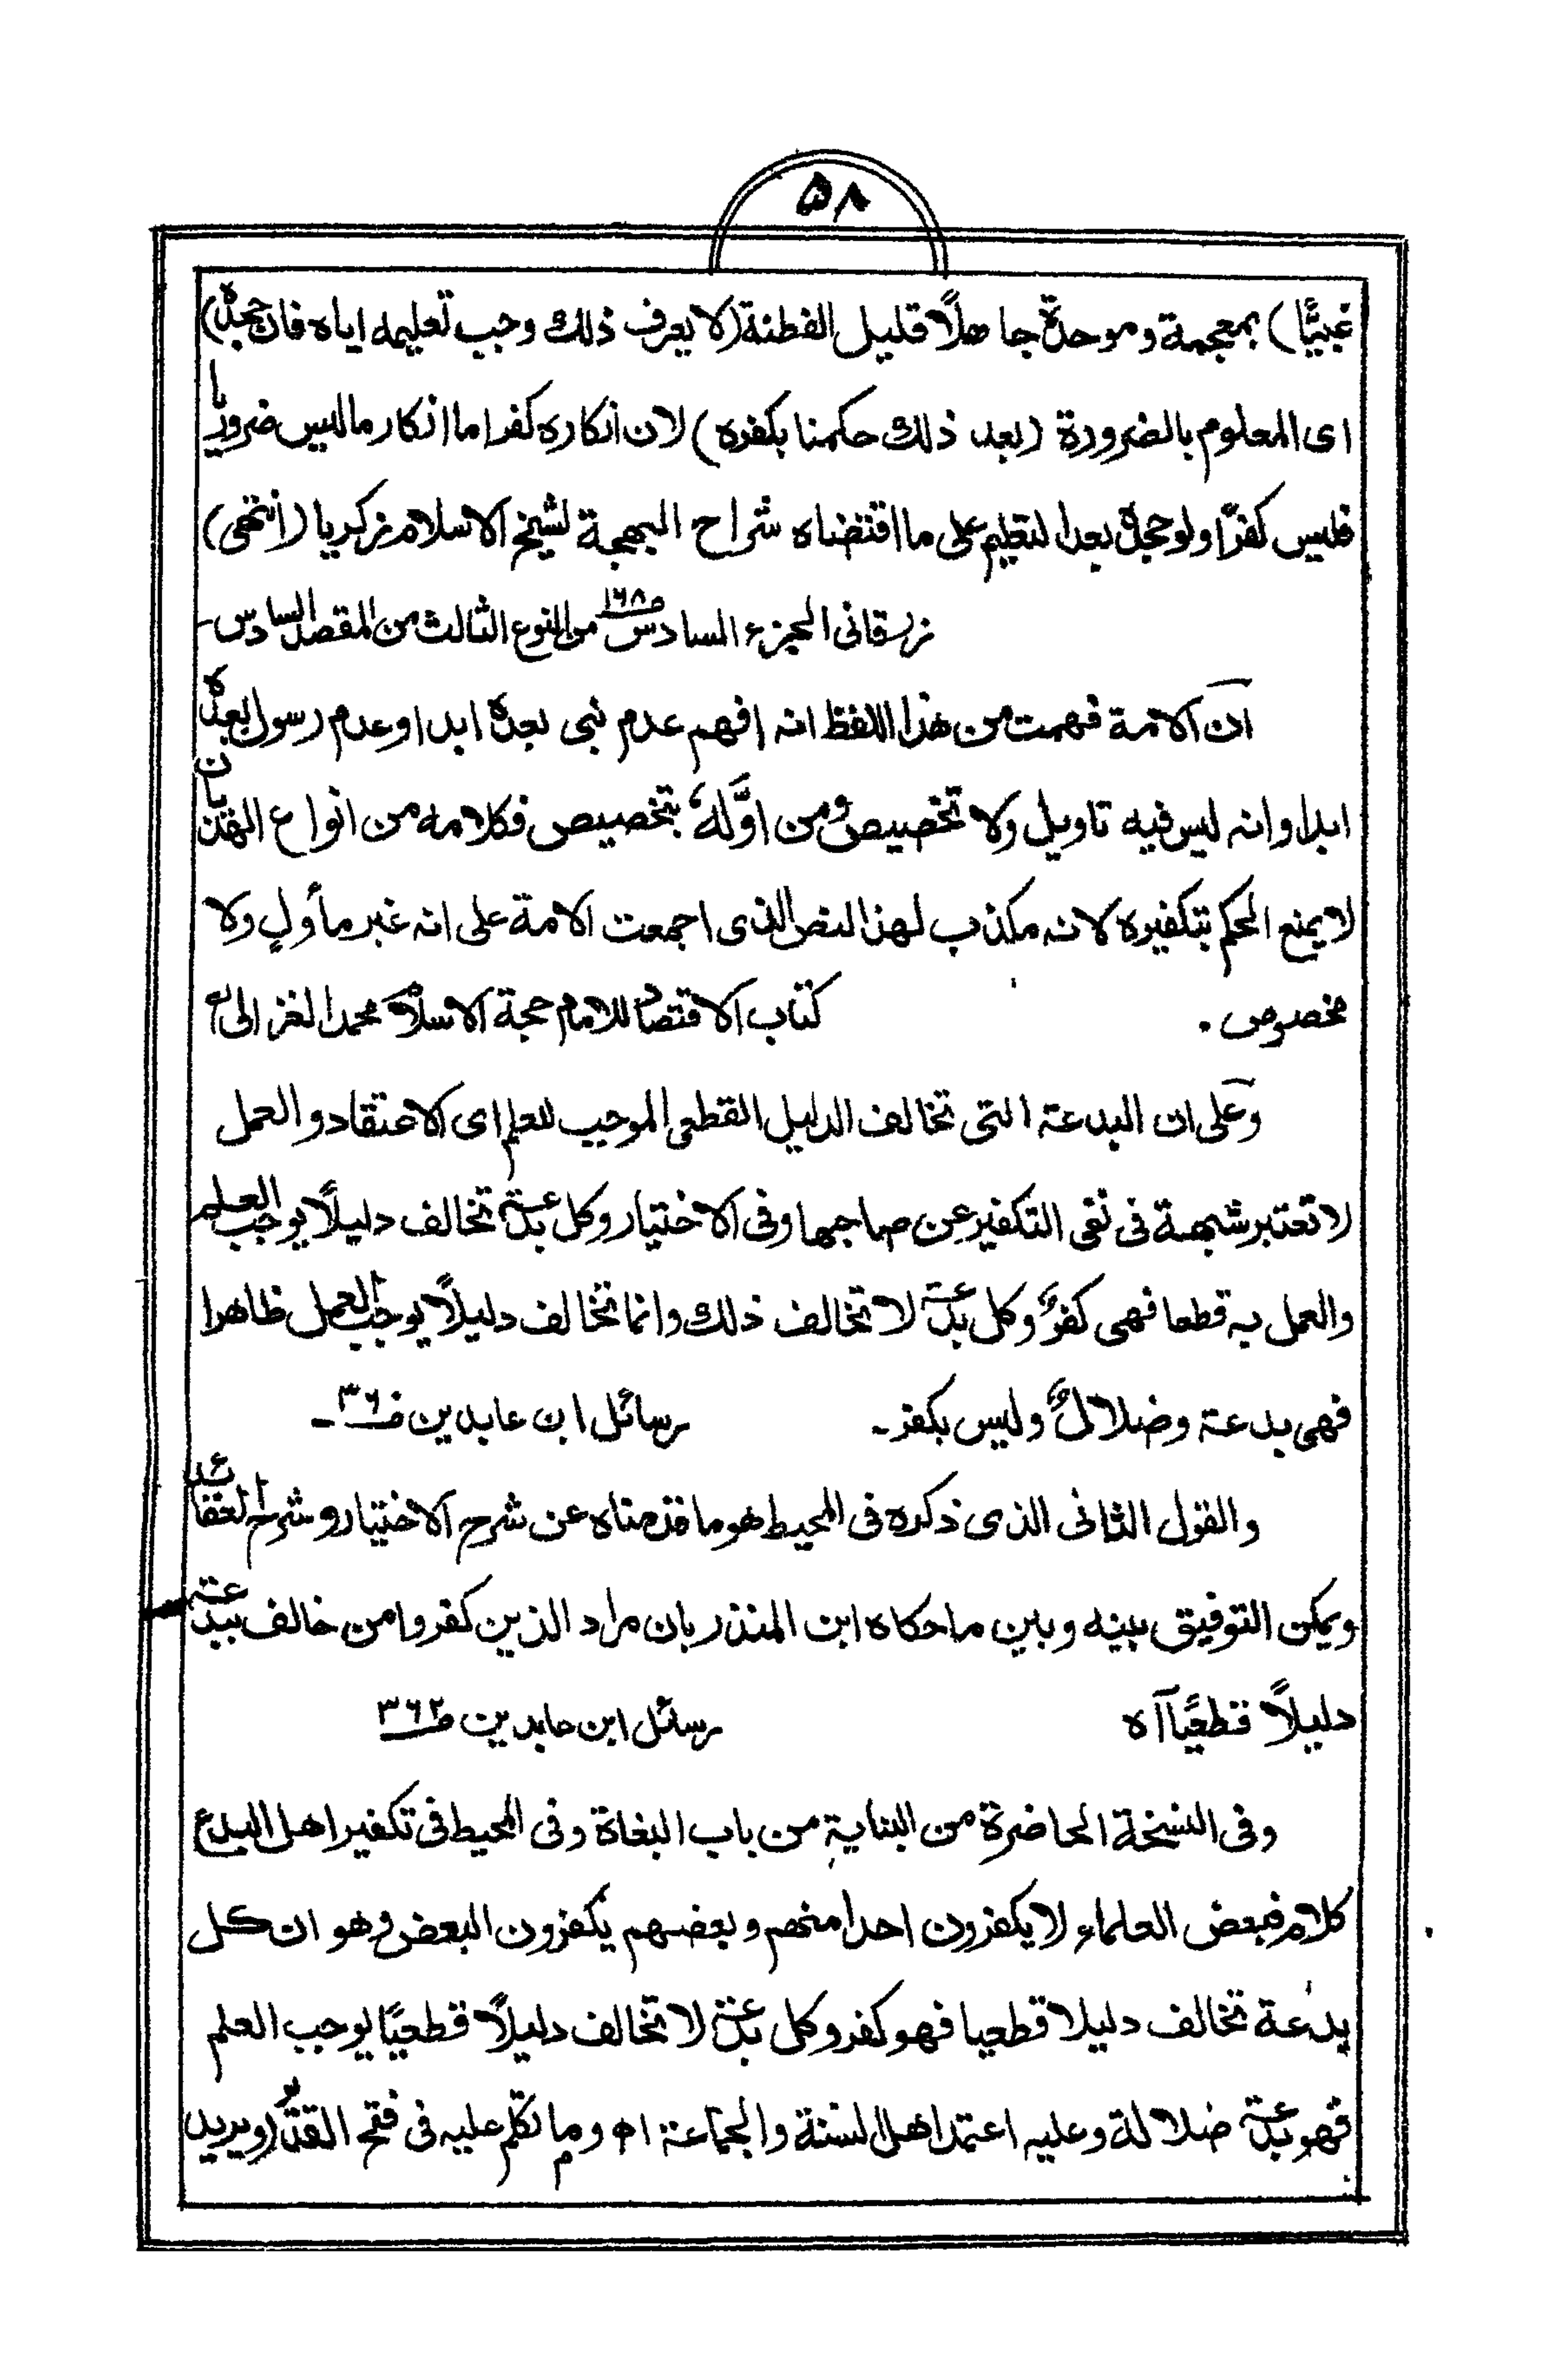 ۵۸
غبيًّا) بمعجمة وموحدة جاهلًا قليل الفطنة (لا يعرف ذلك وجب تعليمه اياه فان جحده)
اى المعلوم بالضرورة (بعد ذلك حكمنا بكفره) لان انكاره كفر اما انكار ما ليس ضروريا
فليس كفرًا ولو جحده بعد التعليم على ما اقتضاه شراح البهجة لشيخ الاسلام زكريا (انتهى)
زرقانى الجزء السادس ص١٦٨ من النوع الثالث من المقصد السادس۔
ان الامة فهمت من هذا اللفظ انه افهم عدم نبى بعده ابدا وعدم رسول بعده
ابدا وانه ليس فيه تاويل ولا تخصيص ومن اوّله بتخصيص فكلامه من انواع الهذيان
لا يمنع الحكم بتكفيره لانه مكذب لهذا النص الذى اجمعت الامة على انه غير مأول ولا
مخصوص . كتاب الاقتصاد للامام حجة الاسلام محمد الغزالى
وعلى ان البدعة التى تخالف الدليل القطعى الموجب للعلم اى الاعتقاد والعمل
لا تعتبر شبهة فى نفى التكفير عن صاحبها وفى الاختيار وكل بدعة تخالف دليلًا يوجب العلم
والعمل به قطعا فهى كفرٌ وكل بدعة لا تخالف ذلك وانما تخالف دليلًا يوجب العمل ظاهرا
فهى بدعة وضلالٌ وليس بكفر۔ رسائل ابن عابدين ص٣٦٠۔
والقول الثانى الذى ذكره فى المحيط هو ما قدمناه عن شرح الاختيار وشرح العقائد
ويمكن التوفيق بينه وبين ما حكاه ابن المنذر بان مراد الذين كفروا من خالف ببدعته
دليلًا قطعيًا اه رسائل ابن عابدين ص٣٦٢
وفى النسخة الحاضرة من البناية من باب البغاة وفى المحيط فى تكفير اهل البدع
كلام فبعض العلماء لا يكفرون احدا منهم وبعضهم يكفرون البعض وهو ان كل
بدعة تخالف دليلا قطعيا فهو كفر وكل بدعة لا تخالف دليلًا قطعيًا يوجب العلم
فهو بدعة ضلالة وعليه اعتمد اهل السنة والجماعة اه وما تكلم عليه فى فتح القدير (ويريد